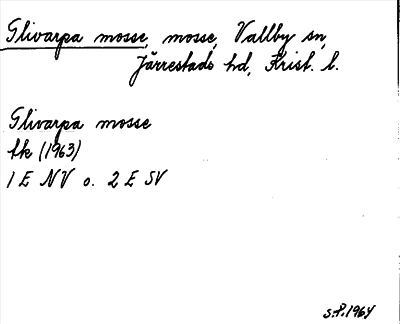 Glivarpa mosse, mosse, Vallby sn,
Järrestads hd, Krist. l.
Glivarpa mosse
tk (1963)
1 E NV o. 2 E SV
S.P. 1964